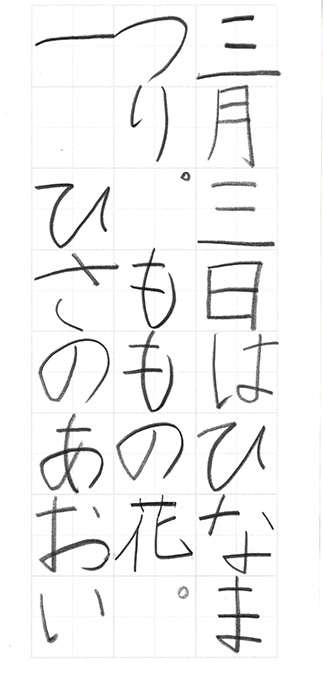 三月三日はひなま
つり。ももの花。
一 ひさのあおい